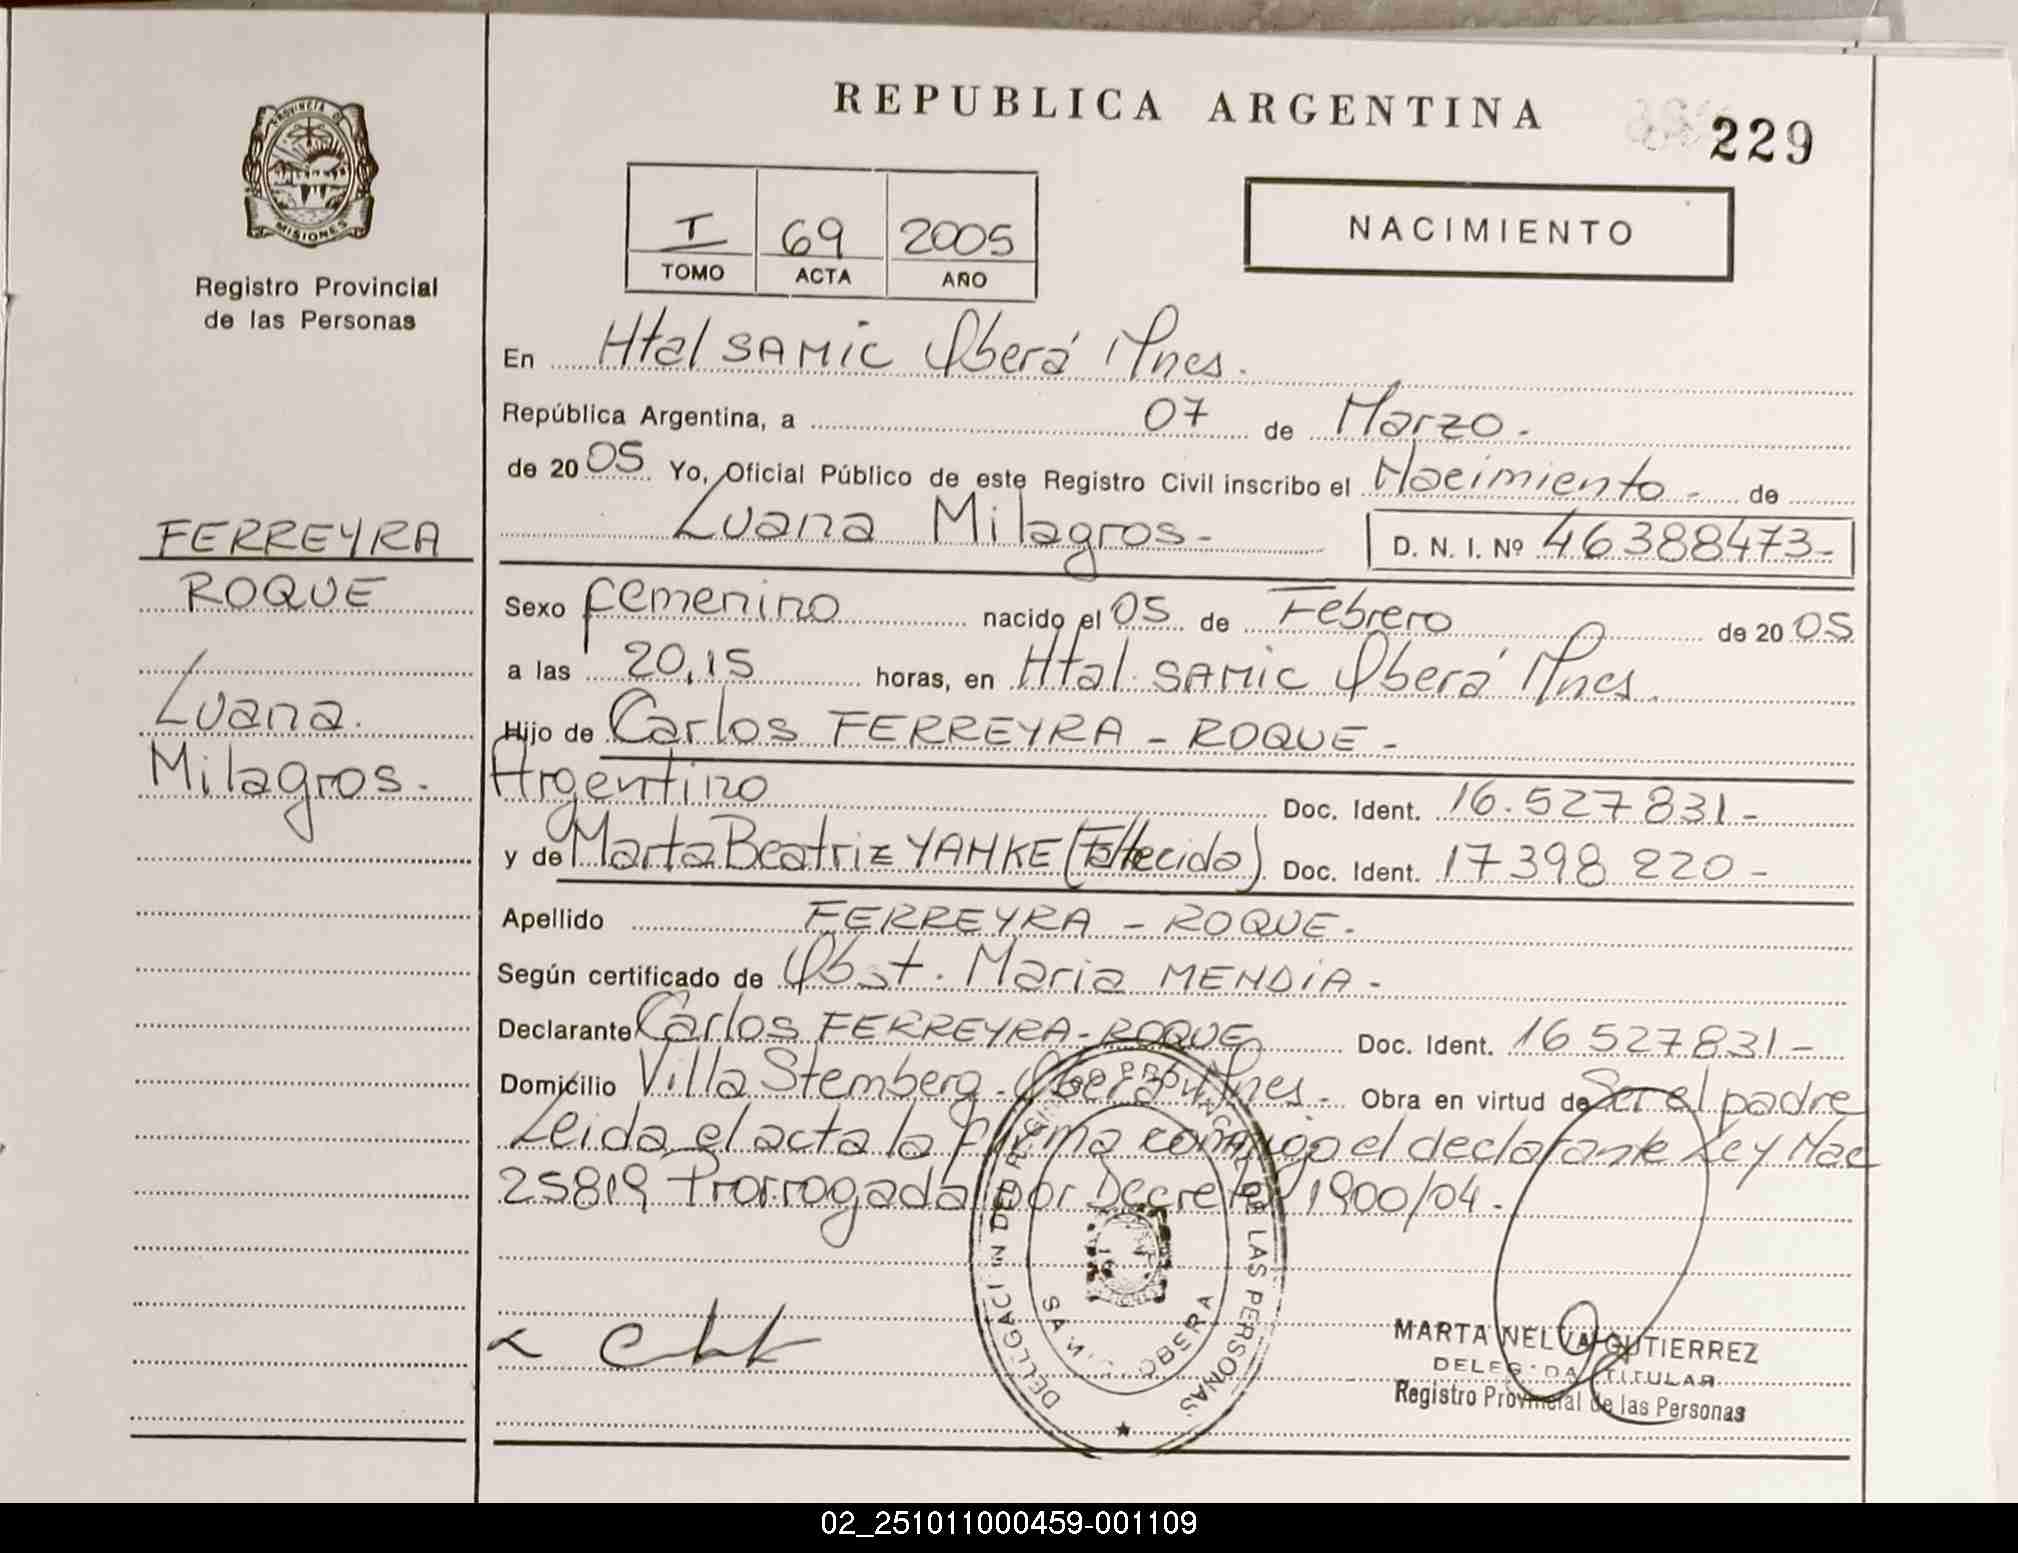 REPUBLICA ARGENTINA
229
PROVINCIA DE
MISIONES
Registro Provincial
de las Personas
I 69 2005
TOMO ACTA AÑO
NACIMIENTO
En Htal SAMIC Oberá Mnes.
República Argentina, a 07 de Marzo.
de 2005 Yo, Oficial Público de este Registro Civil inscribo el Nacimiento - de
Luana Milagros - D. N. I. Nº 46388473-
FERREYRA
ROQUE
Luana.
Milagros.
Sexo femenino nacido el 05 de Febrero de 2005
a las 20,15 horas, en Htal. SAMIC Oberá Mnes.
Hijo de Carlos FERREYRA - ROQUE -
Argentino Doc. Ident. 16.527831-
y de Marta Beatriz YAHKE (Fallecida) Doc. Ident. 17398220-
Apellido FERREYRA - ROQUE.
Según certificado de Obst. Maria MENDIA -
Declarante Carlos FERREYRA - ROQUE Doc. Ident. 16527831-
Domicilio Villa Stemberg - Oberá Mnes - Obra en virtud de Ser el padre
Leida el acta la firma conmigo el declarante Ley Nac
25819 Prorrogada por Decreto 1900/04.
REGISTRO PROVINCIAL DE LAS PERSONAS
OBERA
MARTA NELVA GUTIERREZ
DELEGADA TITULAR
Registro Provincial de las Personas
02_251011000459-001109